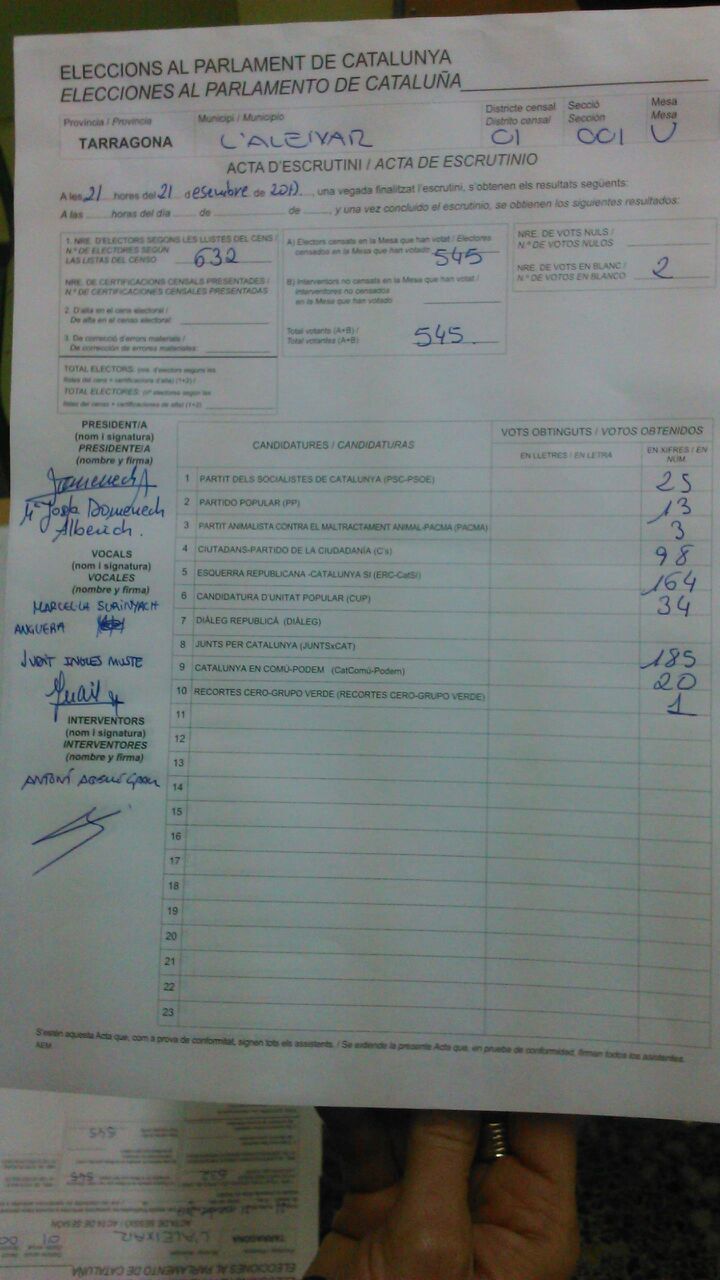 ELECCIONS AL PARLAMENT DE CATALUNYA
ELECCIONES AL PARLAMENTO DE CATALUÑA
Província / Provincia
TARRAGONA
Municipi / Municipio
L'ALEIXAR
Districte censal
Distrito censal
01
Secció
Sección
001
Mesa
Mesa
U
ACTA D'ESCRUTINI / ACTA DE ESCRUTINIO
A les 21 hores del 21 desembre de 2017, una vegada finalitzat l'escrutini, s'obtenen els resultats següents:
A las ...... horas del día ...... de ...... de ......, y una vez concluido el escrutinio, se obtienen los siguientes resultados:
1. NRE. D'ELECTORS SEGONS LES LLISTES DEL CENS /
N.º DE ELECTORES SEGÚN
LAS LISTAS DEL CENSO 632
NRE. DE CERTIFICACIONS CENSALS PRESENTADES /
N.º DE CERTIFICACIONES CENSALES PRESENTADAS
2. D'alta en el cens electoral /
De alta en el censo electoral:
3. De correcció d'errors materials /
De corrección de errores materiales:
TOTAL ELECTORS: (nre. d'electors segons les
llistes del cens + certificacions d'alta) (1+2) /
TOTAL ELECTORES: (nº electores según las
listas del censo + certificaciones de alta) (1+2)
A) Electors censats en la Mesa que han votat / Electores
censados en la Mesa que han votado 545
B) Interventors no censats en la Mesa que han votat /
Interventores no censados
en la Mesa que han votado
Total votants (A+B) /
Total votantes (A+B) 545
NRE. DE VOTS NULS /
N.º DE VOTOS NULOS
NRE. DE VOTS EN BLANC /
N.º DE VOTOS EN BLANCO 2
PRESIDENT/A
(nom i signatura)
PRESIDENTE/A
(nombre y firma)
Mª Josepa Domenech
Alberich.
VOCALS
(nom i signatura)
VOCALES
(nombre y firma)
MARCEL·LA SURINYACH
ANGUERA
JUDIT INGLES MUSTE
INTERVENTORS
(nom i signatura)
INTERVENTORES
(nombre y firma)
ANTONI
CANDIDATURES / CANDIDATURAS
VOTS OBTINGUTS / VOTOS OBTENIDOS
EN LLETRES / EN LETRA
EN XIFRES / EN NÚM.
1 PARTIT DELS SOCIALISTES DE CATALUNYA (PSC-PSOE) 25
2 PARTIDO POPULAR (PP) 13
3 PARTIT ANIMALISTA CONTRA EL MALTRACTAMENT ANIMAL-PACMA (PACMA) 3
4 CIUTADANS-PARTIDO DE LA CIUDADANÍA (C's) 98
5 ESQUERRA REPUBLICANA -CATALUNYA SÍ (ERC-CatSí) 164
6 CANDIDATURA D'UNITAT POPULAR (CUP) 34
7 DIÀLEG REPUBLICÀ (DIÀLEG)
8 JUNTS PER CATALUNYA (JUNTSxCAT) 185
9 CATALUNYA EN COMÚ-PODEM (CatComú-Podem) 20
10 RECORTES CERO-GRUPO VERDE (RECORTES CERO-GRUPO VERDE) 1
11
12
13
14
15
16
17
18
19
20
21
22
23
S'estén aquesta Acta que, com a prova de conformitat, signen tots els assistents. / Se extiende la presente Acta que, en prueba de conformidad, firman todos los asistentes.
AEM
545
632
545
ACTA DE SESSIÓ / ACTA DE SESIÓN
TARRAGONA
L'ALEIXAR
01
ELECCIONES AL PARLAMENTO DE CATALUÑA